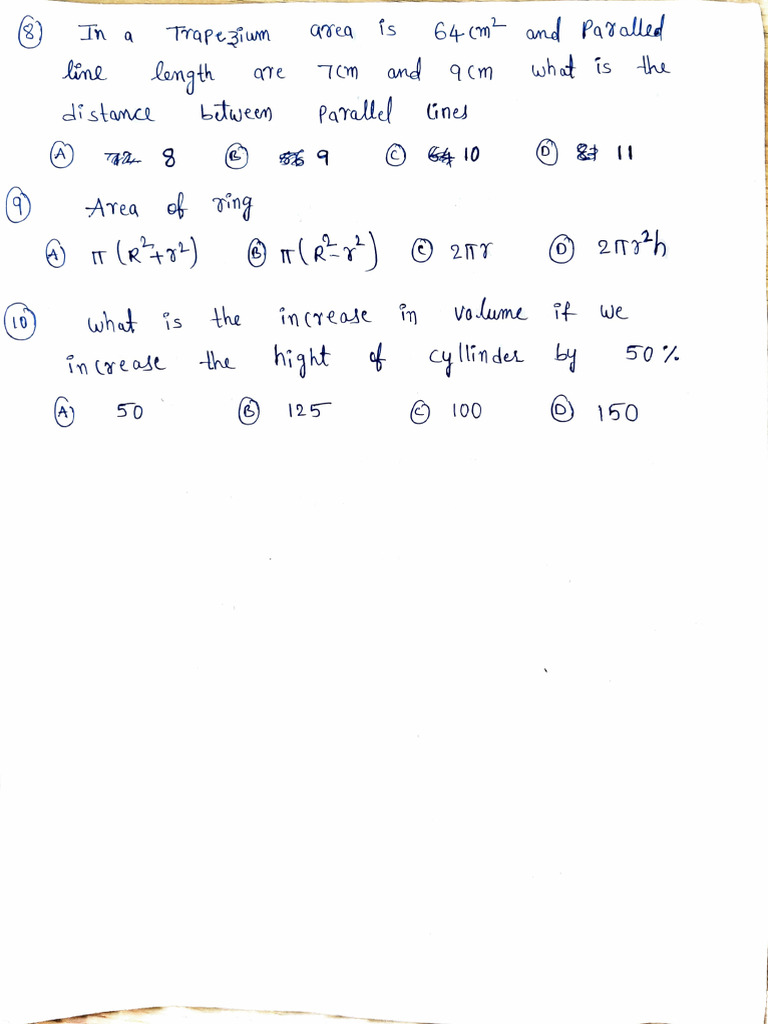 ⑧ In a Trapezium area is 64cm² and Paralled
line length are 7cm and 9cm what is the
distance between Parallel lines
Ⓐ 8 Ⓑ 9 Ⓒ 10 Ⓓ 11
⑨ Area of ring
Ⓐ π(R²+r²) Ⓑ π(R²-r²) Ⓒ 2πr Ⓓ 2πr²h
⑩ What is the increase in volume if we
increase the hight of cyllinder by 50%
Ⓐ 50 Ⓑ 125 Ⓒ 100 Ⓓ 150